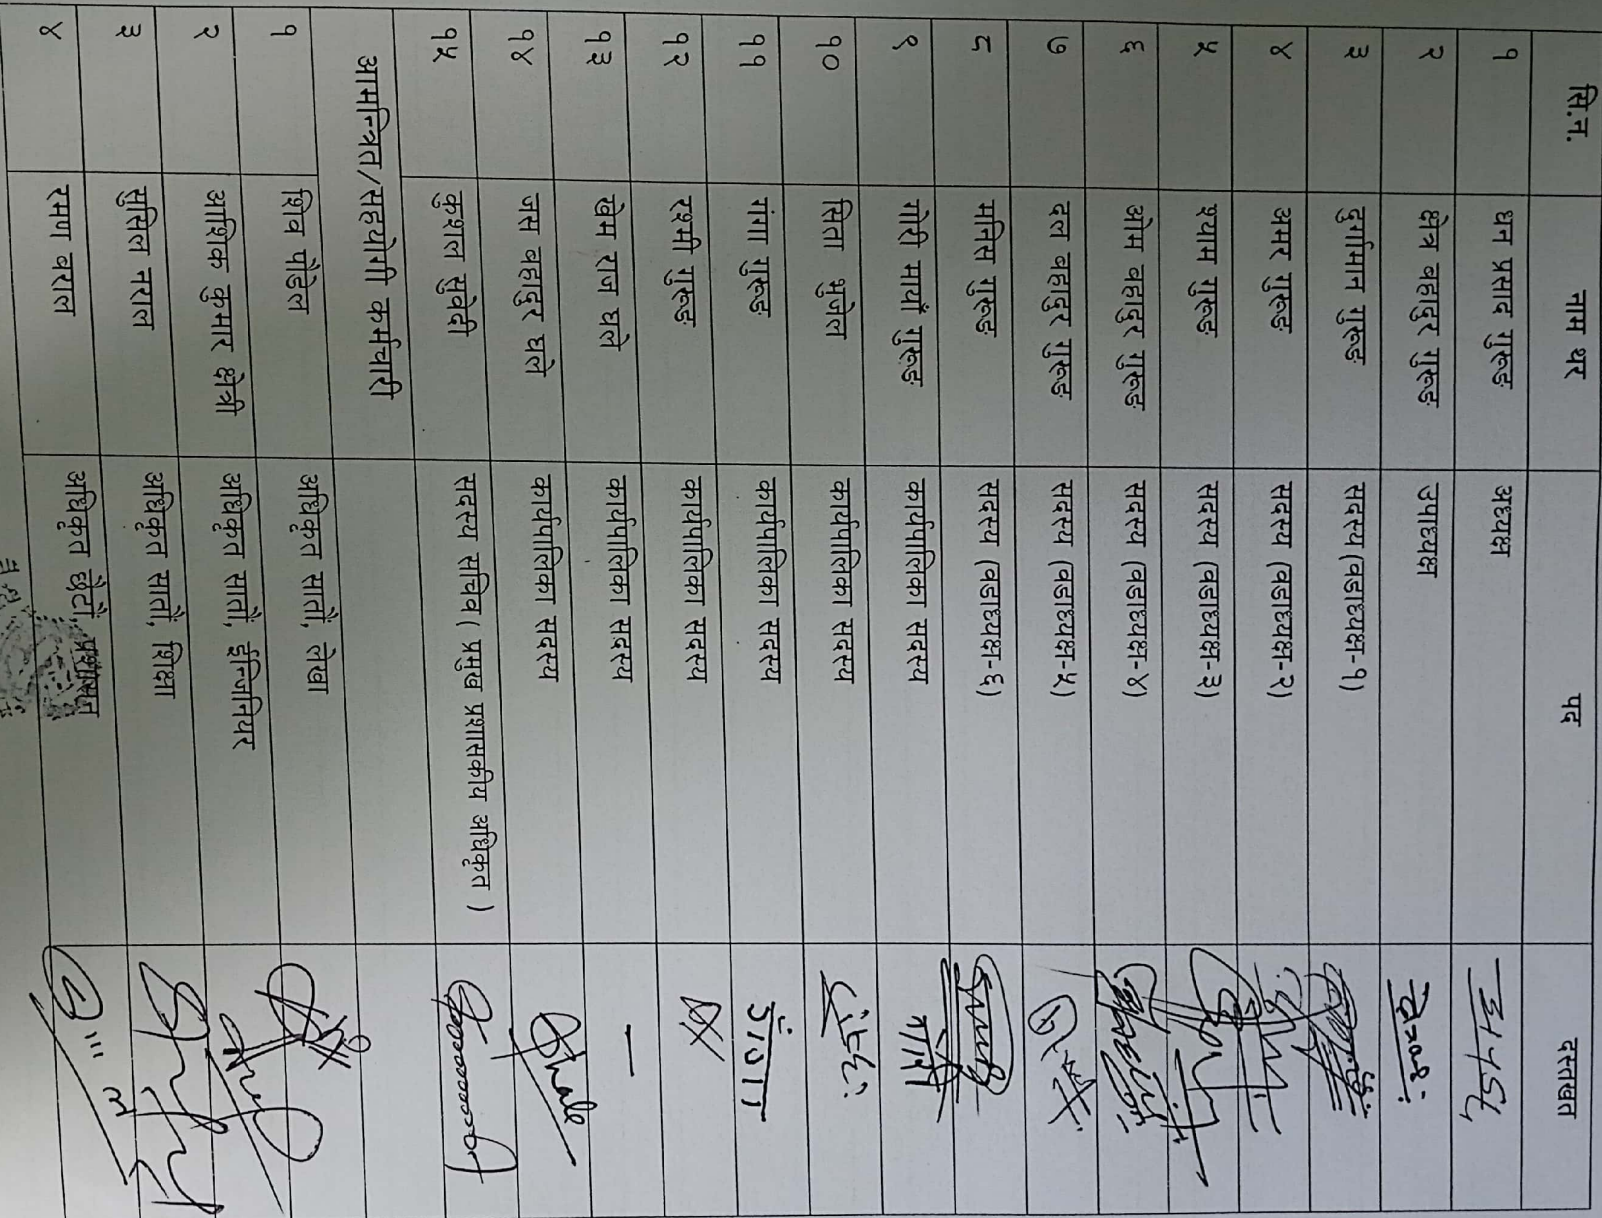 सि.न. नाम थर पद दस्तखत
१ धन प्रसाद गुरुङ अध्यक्ष
२ क्षेत्र वहादुर गुरुङ उपाध्यक्ष
३ दुर्गामान गुरुङ सदस्य (वडाध्यक्ष-१)
४ अमर गुरुङ सदस्य (वडाध्यक्ष-२)
५ श्याम गुरुङ सदस्य (वडाध्यक्ष-३)
६ ओम वहादुर गुरुङ सदस्य (वडाध्यक्ष-४)
७ दल वहादुर गुरुङ सदस्य (वडाध्यक्ष-५)
८ मनिस गुरुङ सदस्य (वडाध्यक्ष-६)
९ गोरी मायाँ गुरुङ कार्यपालिका सदस्य
१० सिता भुजेल कार्यपालिका सदस्य
११ गंगा गुरुङ कार्यपालिका सदस्य
१२ रश्मी गुरुङ कार्यपालिका सदस्य
१३ खेम राज घले कार्यपालिका सदस्य –
१४ जस वहादुर घले कार्यपालिका सदस्य Ghale
१५ कुशल सुवेदी सदस्य सचिव ( प्रमुख प्रशासकीय अधिकृत )
आमन्त्रित/सहयोगी कर्मचारी
१ शिव पौडेल अधिकृत सातौ, लेखा
२ आशिक कुमार क्षेत्री अधिकृत सातौ, ईन्जिनियर
३ सुसिल नराल अधिकृत सातौ, शिक्षा
४ रमण वराल अधिकृत छैटौ, प्रशासन